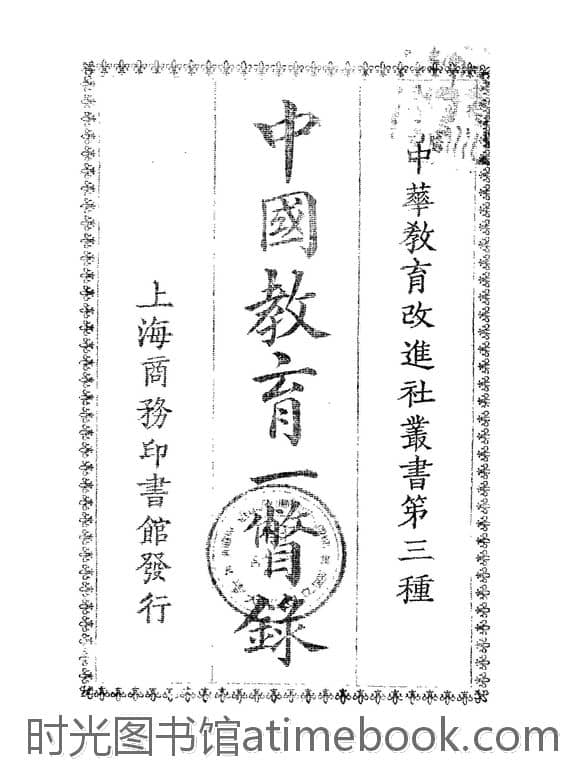 中華教育改進社叢書第三種
中國教育一瞥錄
上海商務印書館發行
时光图书馆atimebook.com